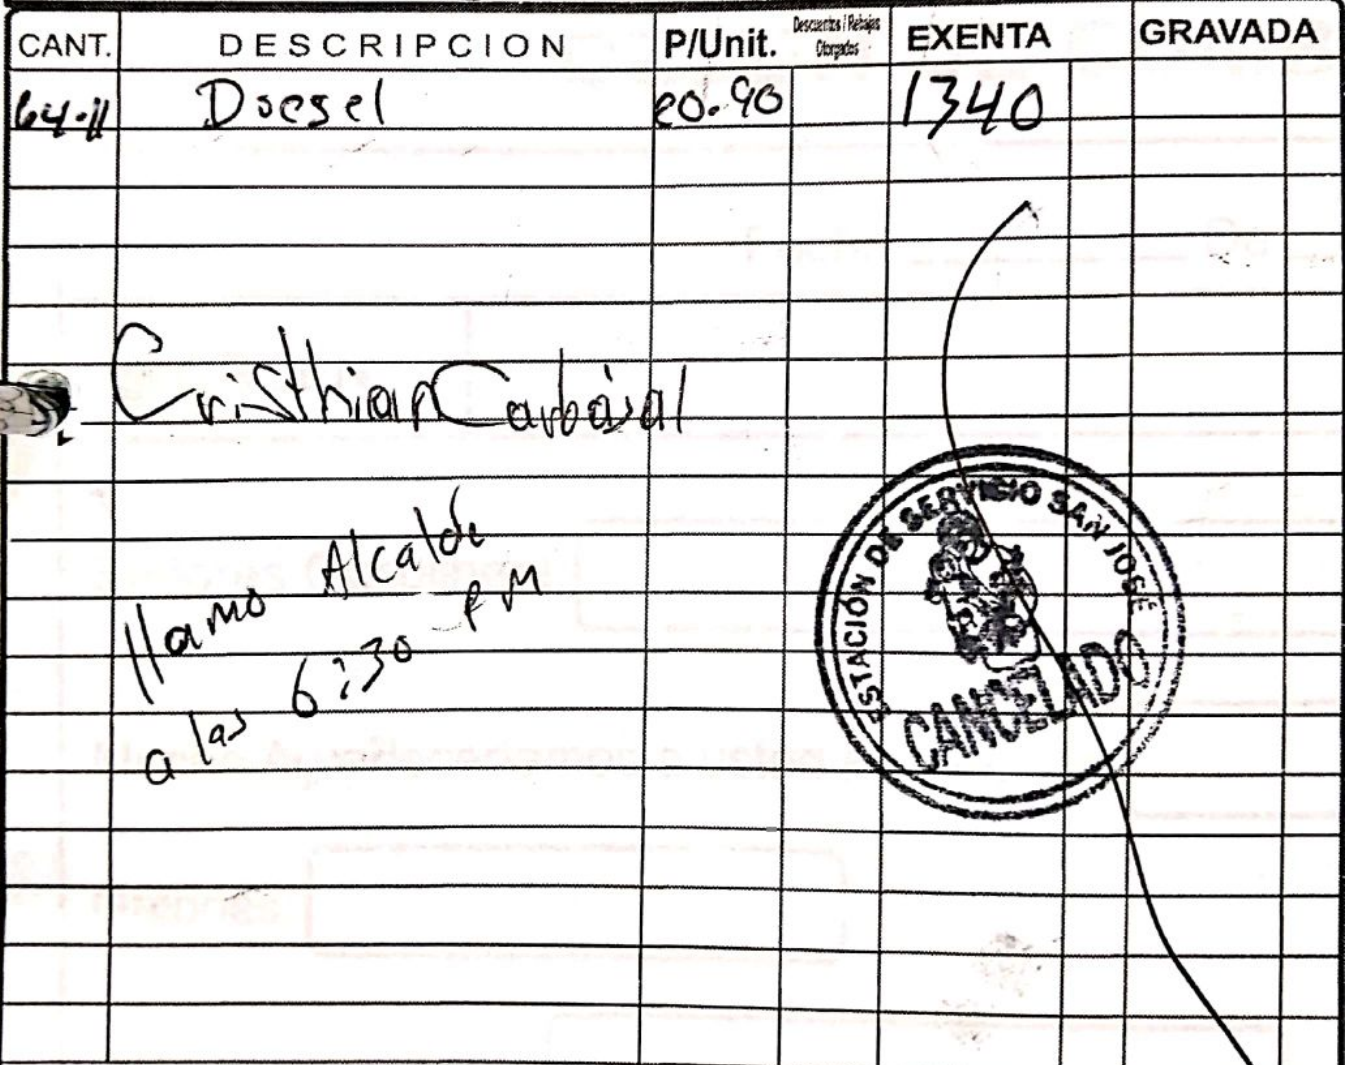 CANT. DESCRIPCION P/Unit. Descuentos / Rebajas Otorgados EXENTA GRAVADA
64.11 Diesel 20.90 1340
Cristhian Carbajal
llamo Alcalde
a las 6:30 PM
ESTACIÓN DE SERVICIO SAN JOSÉ
CANCELADO